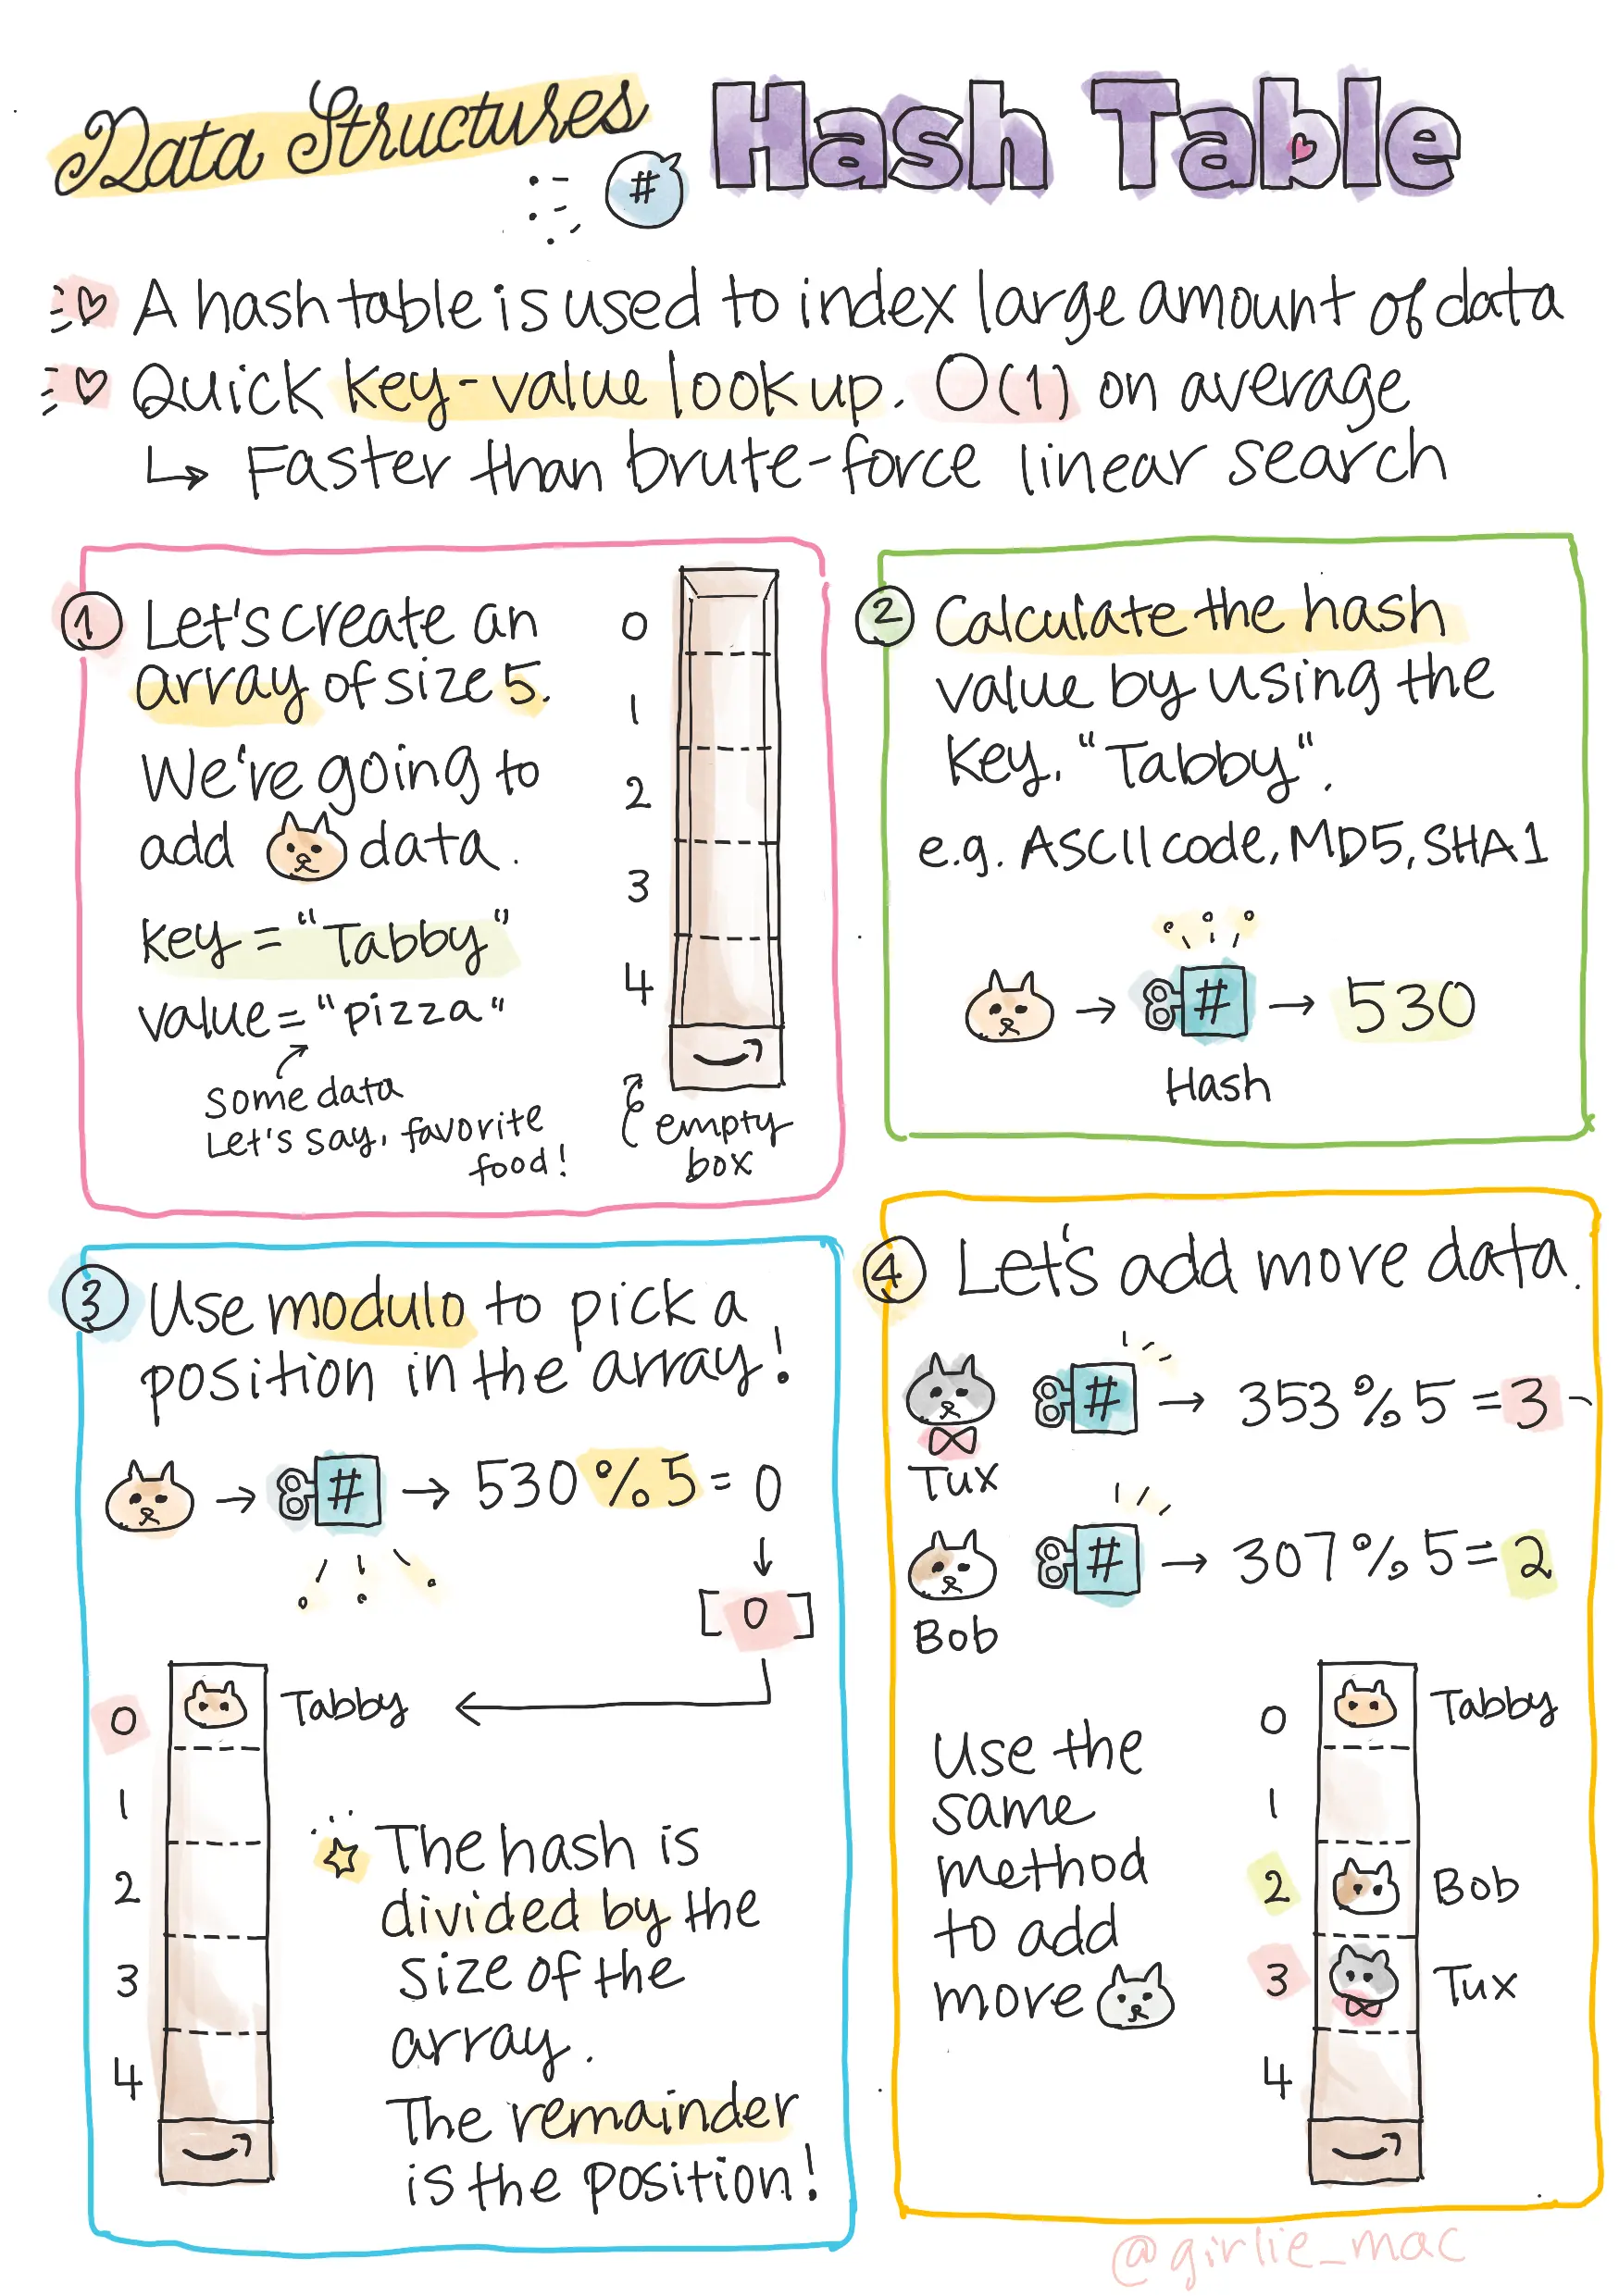 Data Structures
#
Hash Table
A hash table is used to index large amount of data
Quick key-value look up. O(1) on average
↳ Faster than brute-force linear search
1
Let's create an
array of size 5.
We're going to
add data.
key = "Tabby"
value = "pizza"
some data
Let's say, favorite
food!
0
1
2
3
4
empty
box
2
Calculate the hash
value by using the
key, "Tabby".
e.g. ASCII code, MD5, SHA1
→ # → 530
Hash
3
Use modulo to pick a
position in the array!
→ # → 530 % 5 = 0
↓
[0]
0 Tabby ←
1
2
3
4
The hash is
divided by the
size of the
array.
The remainder
is the position!
4
Let's add more data.
# → 353 % 5 = 3
Tux
# → 307 % 5 = 2
Bob
Use the
same
method
to add
more
0 Tabby
1
2 Bob
3 Tux
4
@girlie_mac